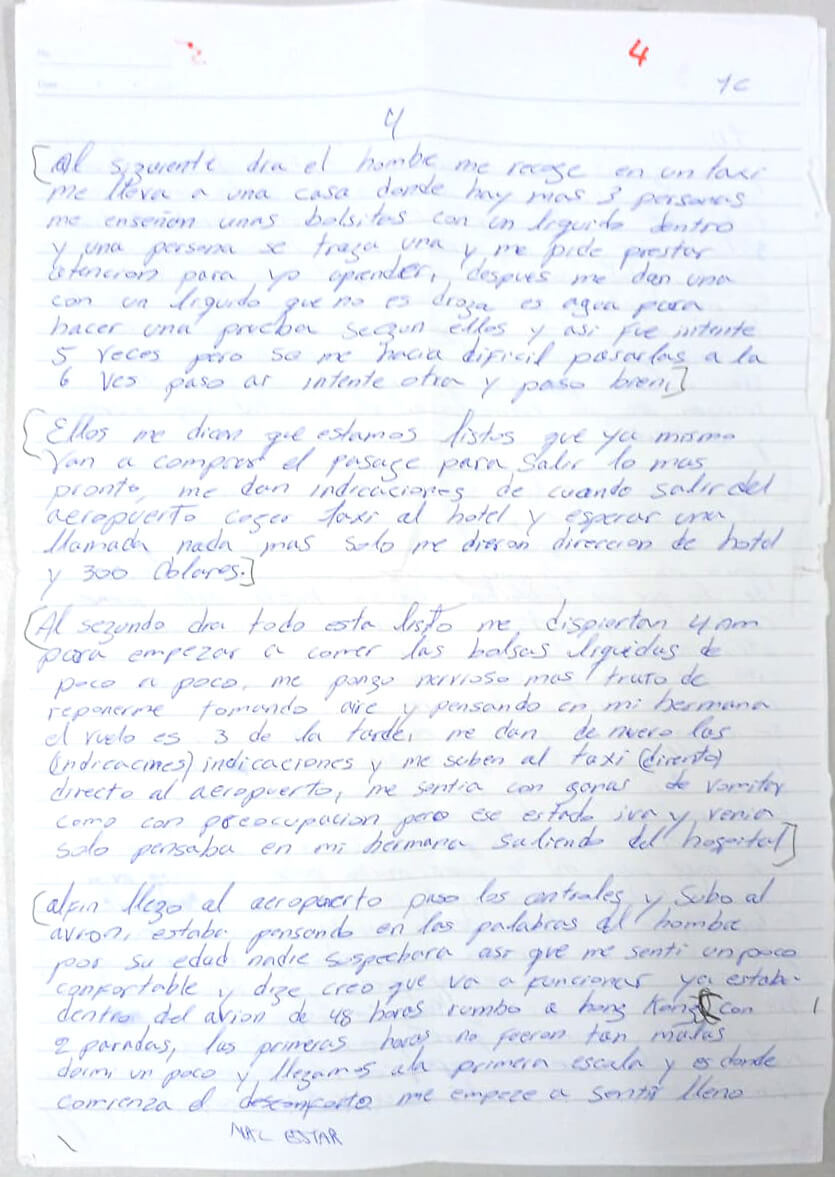 4
YC
4
[Al siguiente dia el hombe me recoge en un taxi
me lleva a una casa donde hay mas 3 personas
me enseñen unas bolsitas con un liquido dentro
y una persona se traga una y me pide prestar
atencion para yo aprender, despues me dan una
con un liquido que no es droga es agua para
hacer una prueba segun ellos y asi fue intente
5 veces pero se me hacia dificil pasarlas a la
6 ves paso ar intente otra y paso bien,]
[Ellos me dicen que estamos listos que ya mismo
van a comprar el pasage para salir lo mas
pronto, me dan indicaciones de cuando salir del
aeropuerto coger taxi al hotel y esperar una
llamada nada mas solo me dieron direccion de hotel
y 300 Dolares.]
[Al segundo dia todo esta listo me dispiertan 4 am
para empezar a comer las bolsas liquidas de
poco a poco, me pongo nervioso mas trato de
reponerme tomando aire y pensando en mi hermana
el vuelo es 3 de la tarde, me dan de nuevo las
(indicacines) indicaciones y me suben al taxi (dirento)
directo al aeropuerto, me sentia con ganas de vomitar
como con preocupacion pero ese estado iva y venia
solo pensaba en mi hermana saliendo del hospital]
[alfin llego al aeropuerto paso los controles y subo al
avion, estaba pensando en las palabras del hombre
por su edad nadie sospechara asi que me senti un poco
confortable y dige creo que va a funcionar ya estaba
dentro del avion de 48 horas rumbo a hong Kong (con
2 paradas, las primeras horas no fueron tan malas
dormi un poco y llegamos ala primera escala y es donde
comienza el desconforto me empeze a sentir lleno
MAL ESTAR